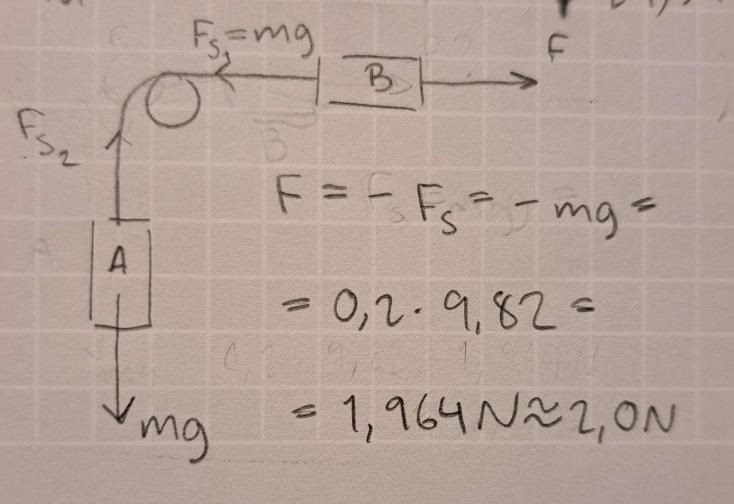 F_S₁ = mg
B
F
F_S₂
A
mg
F = - F_S = - mg =
= 0,2 · 9,82 =
= 1,964 N ≈ 2,0 N